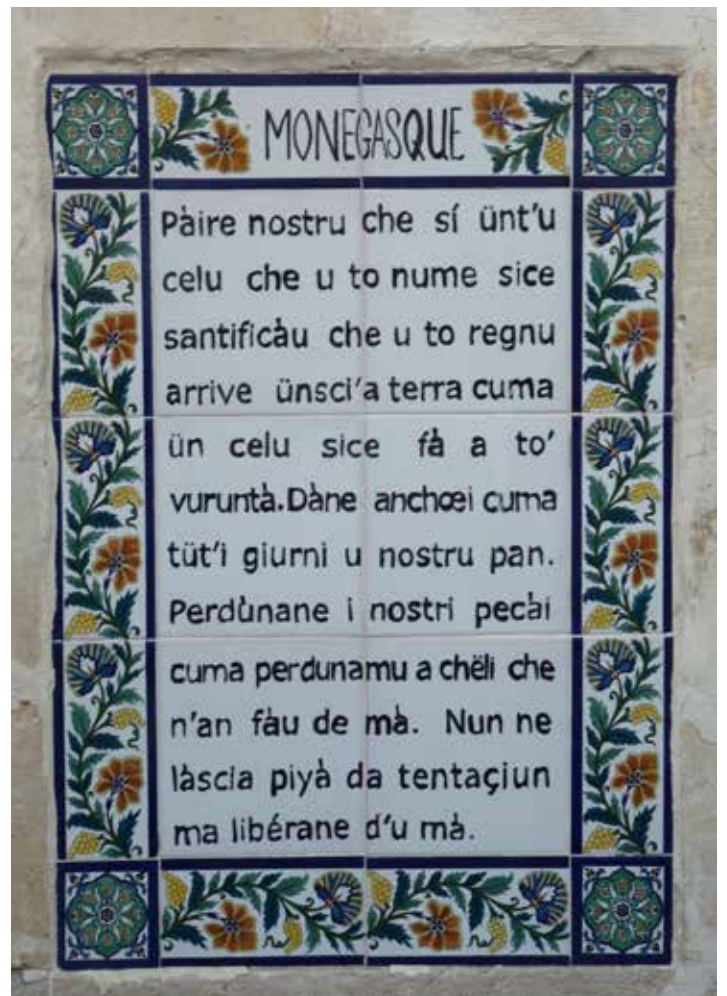 MONEGASQUE
Pàire nostru che sí ünt'u
celu che u to nume sice
santificàu che u to regnu
arrive ünsci'a terra cuma
ün celu sice fà a to'
vuruntà. Dàne anchœi cuma
tüt'i giurni u nostru pan.
Perdùnane i nostri pecài
cuma perdunamu a chëli che
n'an fàu de mà. Nun ne
làscia piyà da tentaçiun
ma libérane d'u mà.